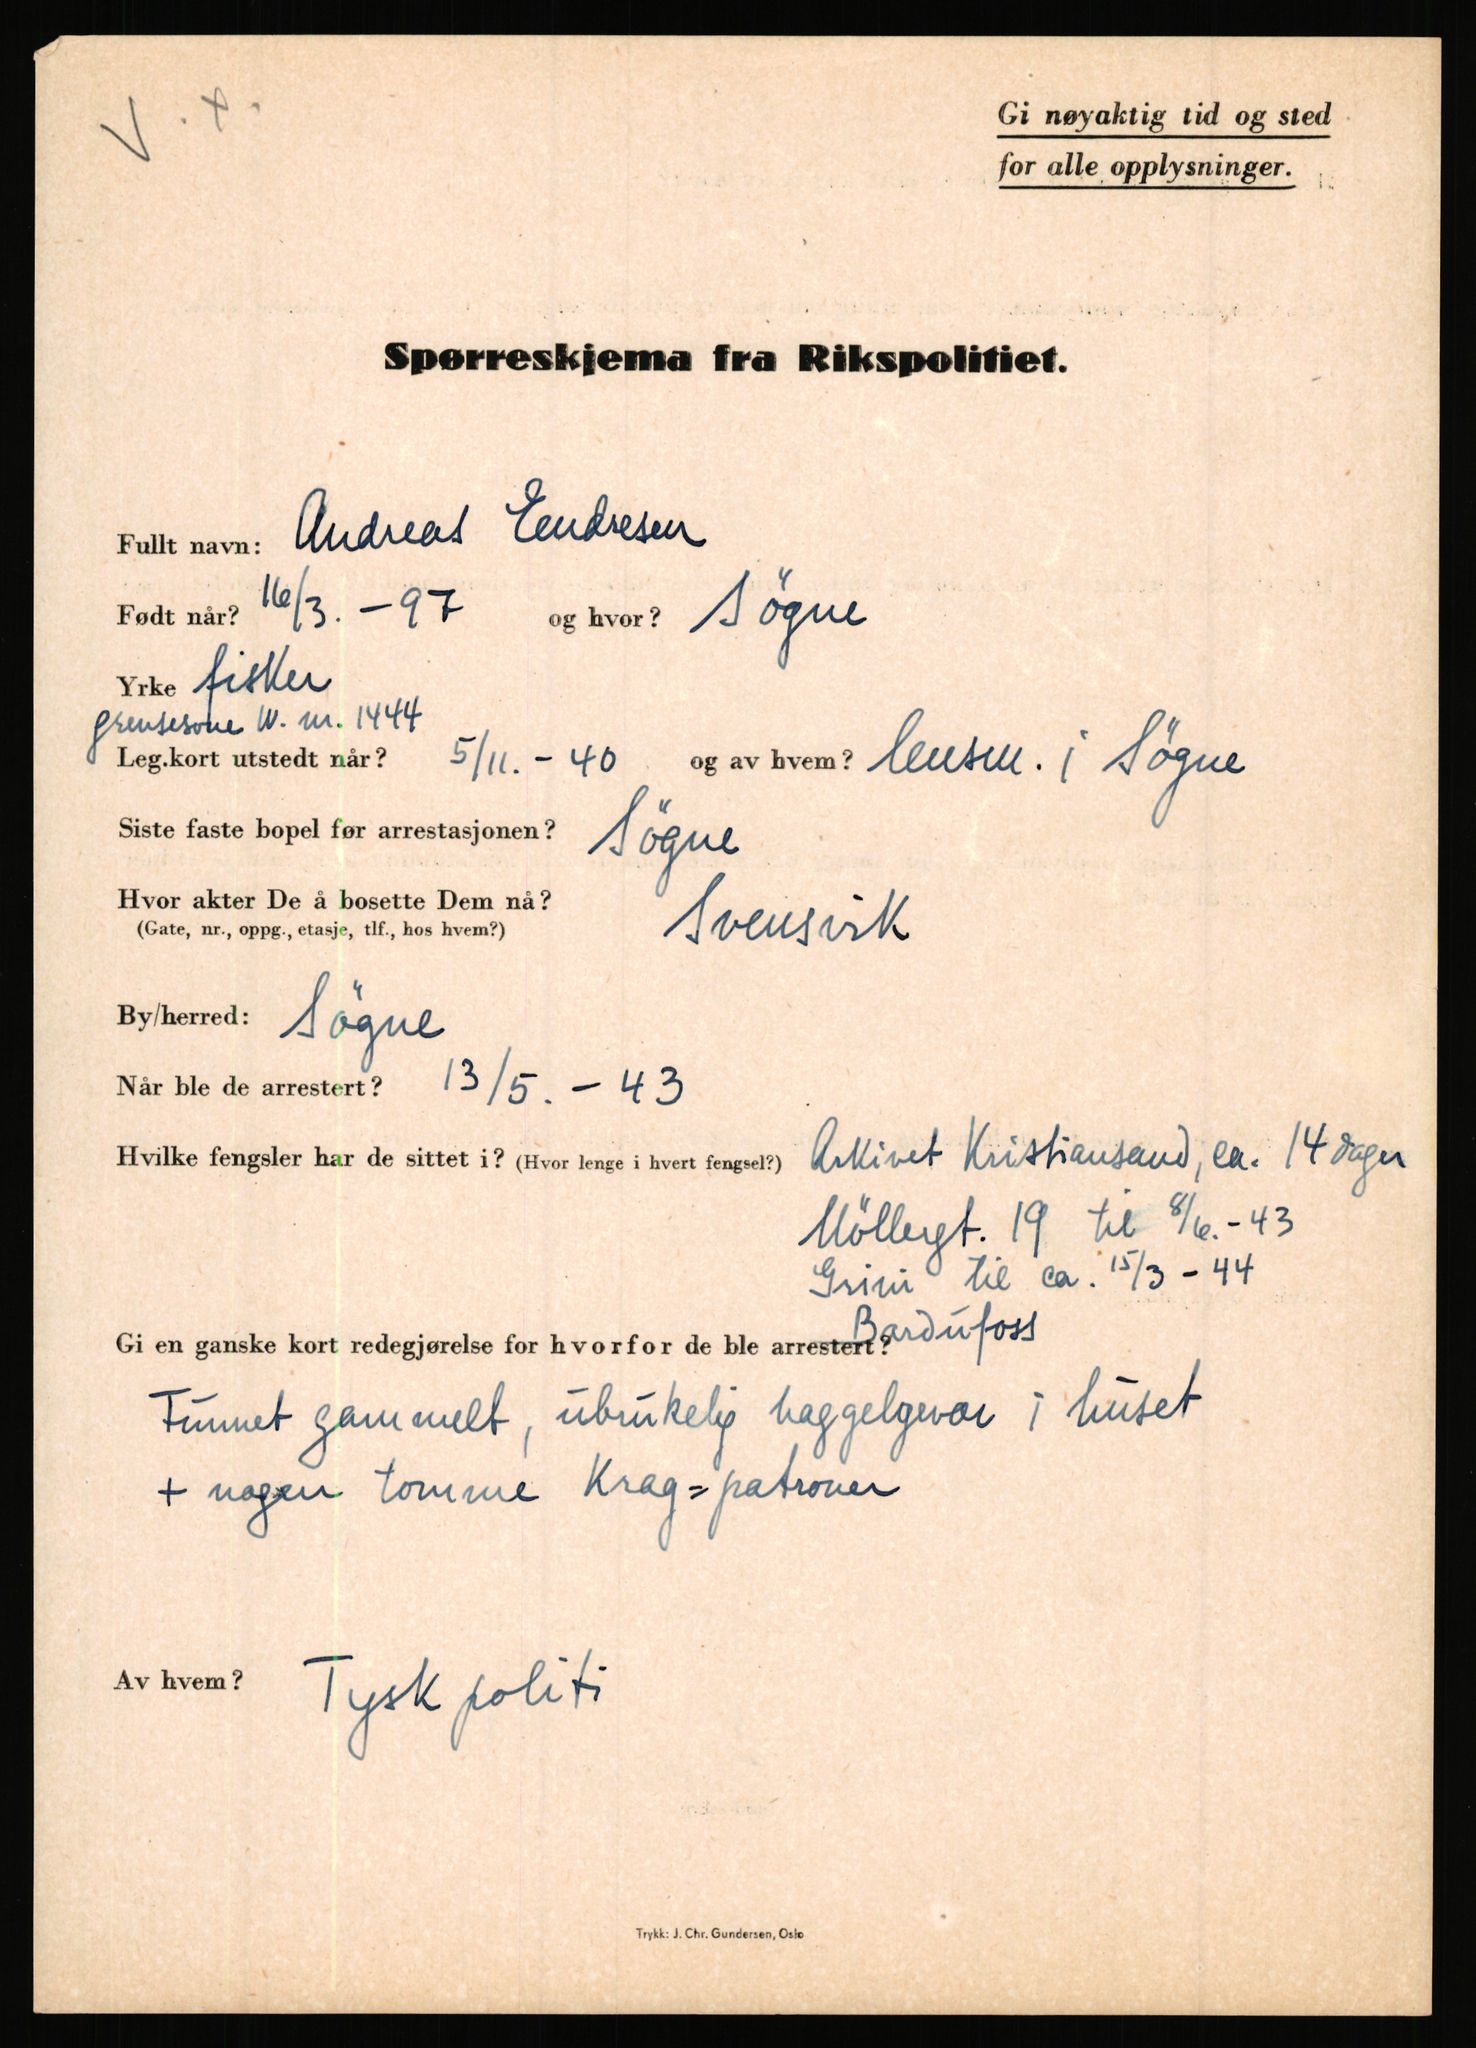 V . x .
Gi nøyaktig tid og sted
for alle opplysninger.
Spørreskjema fra Rikspolitiet.
Fullt navn: Andreas Endresen
Født når? 16/3. – 97 og hvor? Søgne
Yrke fisker
grensesone W. nr. 1444
Leg.kort utstedt når? 5/11. – 40 og av hvem? lensm. i Søgne
Siste faste bopel før arrestasjonen? Søgne
Hvor akter De å bosette Dem nå? Svensvik
(Gate, nr., oppg., etasje, tlf., hos hvem?)
By/herred: Søgne
Når ble de arrestert? 13/5. – 43
Hvilke fengsler har de sittet i? (Hvor lenge i hvert fengsel?) Arkivet Kristiansand, ca. 14 dager
Möllergt. 19 til 8/6. – 43
Grini til ca. 15/3 – 44
Bardufoss
Gi en ganske kort redegjørelse for hvorfor de ble arrestert?
Funnet gammelt, ubrukelig haggelgevær i huset
+ nogen tomme Krag=patroner
Av hvem? Tysk politi
Trykk: J. Chr. Gundersen, Oslo